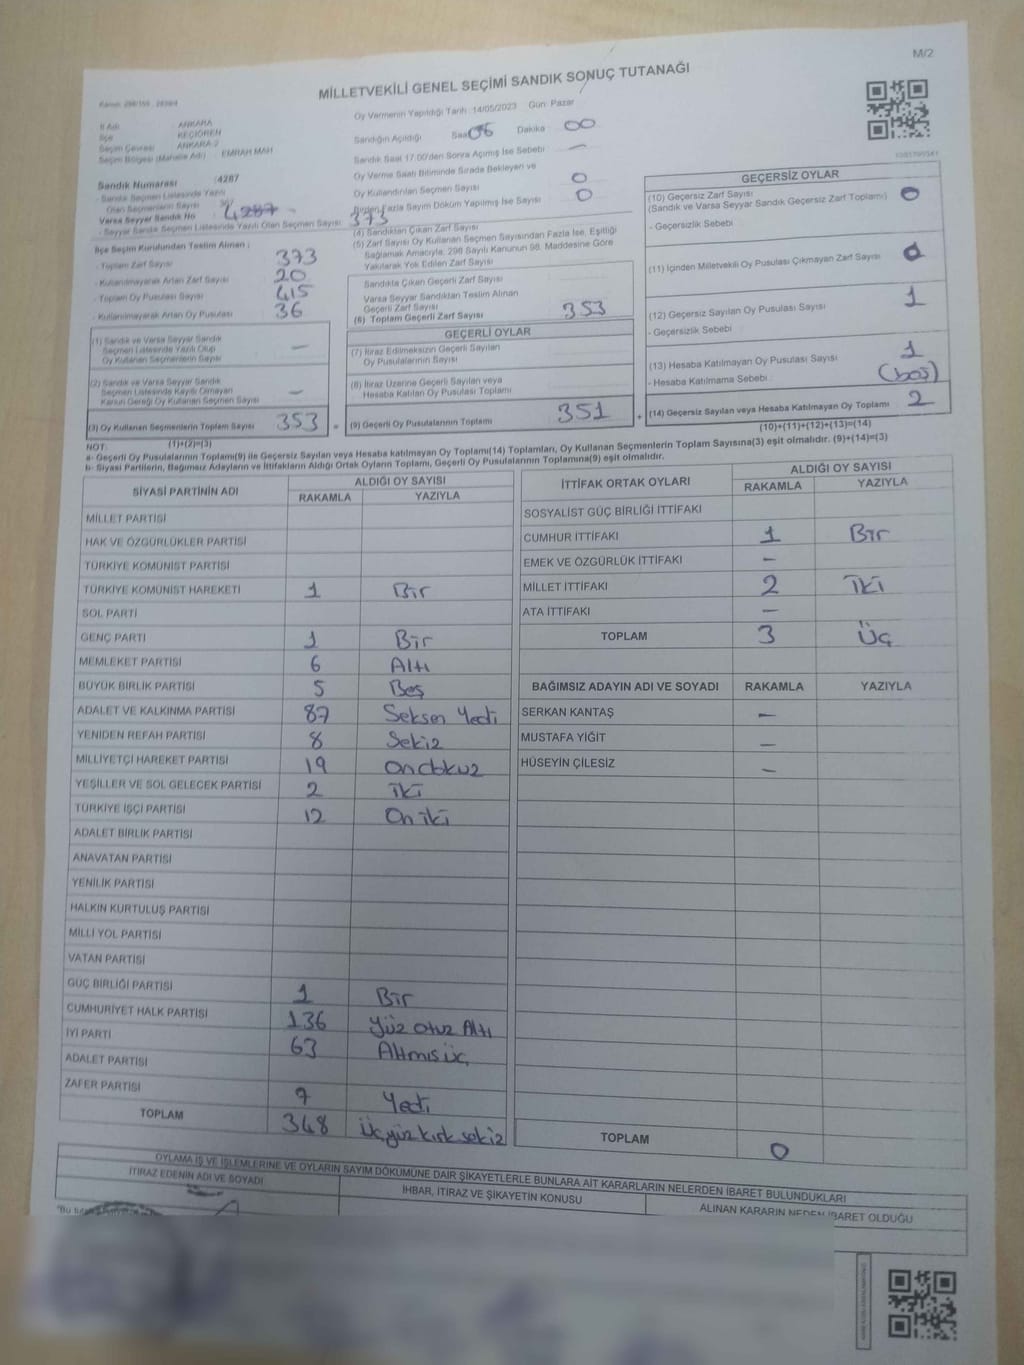 M/2
MİLLETVEKİLİ GENEL SEÇİMİ SANDIK SONUÇ TUTANAĞI
İl Adı ANKARA
İlçe KEÇİÖREN
Seçim Çevresi ANKARA 2
Seçim Bölgesi (Mahalle Adı) EMRAH MAH
Oy Vermenin Yapıldığı Tarih :14/05/2023 Gün: Pazar
Sandığın Açıldığı Saat 06 Dakika 00
Sandık Saat 17:00'den Sonra Açılmış İse Sebebi —
Oy Verme Saati Bitiminde Sırada Bekleyen ve
Oy Kullandırılan Seçmen Sayısı 0
Birden Fazla Sayım Döküm Yapılmış İse Sayısı 0
Sandık Numarası :4287
- Sandık Seçmen Listesinde Yazılı
Olan Seçmenlerin Sayısı
Varsa Seyyar Sandık No 4287 -
- Seyyar Sandık Seçmen Listesinde Yazılı Olan Seçmen Sayısı 373
İlçe Seçim Kurulundan Teslim Alınan ;
- Toplam Zarf Sayısı 373
- Kullanılmayarak Artan Zarf Sayısı 20
- Toplam Oy Pusulası Sayısı 415
- Kullanılmayarak Artan Oy Pusulası 36
(1) Sandık ve Varsa Seyyar Sandık
Seçmen Listesinde Yazılı Olup
Oy Kullanan Seçmenlerin Sayısı —
(2) Sandık ve Varsa Seyyar Sandık
Seçmen Listesinde Kayıtlı Olmayan
Kanun Gereği Oy Kullanan Seçmen Sayısı —
(3) Oy Kullanan Seçmenlerin Toplam Sayısı 353 =
(1)+(2)=(3)
(4) Sandıktan Çıkan Zarf Sayısı
(5) Zarf Sayısı Oy Kullanan Seçmen Sayısından Fazla İse, Eşitliği
Sağlamak Amacıyla, 298 Sayılı Kanunun 98. Maddesine Göre
Yakılarak Yok Edilen Zarf Sayısı
Sandıkta Çıkan Geçerli Zarf Sayısı
Varsa Seyyar Sandıktan Teslim Alınan
Geçerli Zarf Sayısı
(6) Toplam Geçerli Zarf Sayısı 353
GEÇERLİ OYLAR
(7) İtiraz Edilmeksizin Geçerli Sayılan
Oy Pusulalarının Sayısı
(8) İtiraz Üzerine Geçerli Sayılan veya
Hesaba Katılan Oy Pusulası Toplamı
(9) Geçerli Oy Pusulalarının Toplamı 351 +
GEÇERSİZ OYLAR
(10) Geçersiz Zarf Sayısı
(Sandık ve Varsa Seyyar Sandık Geçersiz Zarf Toplamı) 0
- Geçersizlik Sebebi
(11) İçinden Milletvekili Oy Pusulası Çıkmayan Zarf Sayısı 0
(12) Geçersiz Sayılan Oy Pusulası Sayısı 1
- Geçersizlik Sebebi
(13) Hesaba Katılmayan Oy Pusulası Sayısı 1
- Hesaba Katılmama Sebebi (boş)
(14) Geçersiz Sayılan veya Hesaba Katılmayan Oy Toplamı 2
(10)+(11)+(12)+(13)=(14)
NOT:
a- Geçerli Oy Pusulalarının Toplamı(9) ile Geçersiz Sayılan veya Hesaba Katılmayan Oy Toplamı(14) Toplamları, Oy Kullanan Seçmenlerin Toplam Sayısına(3) eşit olmalıdır. (9)+(14)=(3)
b- Siyasi Partilerin, Bağımsız Adayların ve İttifakların Aldığı Ortak Oyların Toplamı, Geçerli Oy Pusulalarının Toplamına(9) eşit olmalıdır.
SİYASİ PARTİNİN ADI ALDIĞI OY SAYISI
RAKAMLA YAZIYLA
MİLLET PARTİSİ
HAK VE ÖZGÜRLÜKLER PARTİSİ
TÜRKİYE KOMÜNİST PARTİSİ
TÜRKİYE KOMÜNİST HAREKETİ 1 Bir
SOL PARTİ
GENÇ PARTİ 1 Bir
MEMLEKET PARTİSİ 6 Altı
BÜYÜK BİRLİK PARTİSİ 5 Beş
ADALET VE KALKINMA PARTİSİ 87 Seksen Yedi
YENİDEN REFAH PARTİSİ 8 Sekiz
MİLLİYETÇİ HAREKET PARTİSİ 19 On dokuz
YEŞİLLER VE SOL GELECEK PARTİSİ 2 iki
TÜRKİYE İŞÇİ PARTİSİ 12 On iki
ADALET BİRLİK PARTİSİ
ANAVATAN PARTİSİ
YENİLİK PARTİSİ
HALKIN KURTULUŞ PARTİSİ
MİLLİ YOL PARTİSİ
VATAN PARTİSİ
GÜÇ BİRLİĞİ PARTİSİ 1 Bir
CUMHURİYET HALK PARTİSİ 136 Yüz otuz Altı
İYİ PARTİ 63 Altmış üç
ADALET PARTİSİ
ZAFER PARTİSİ 7 Yedi
TOPLAM 348 Üç yüz kırk sekiz
İTTİFAK ORTAK OYLARI ALDIĞI OY SAYISI
RAKAMLA YAZIYLA
SOSYALİST GÜÇ BİRLİĞİ İTTİFAKI
CUMHUR İTTİFAKI 1 Bir
EMEK VE ÖZGÜRLÜK İTTİFAKI -
MİLLET İTTİFAKI 2 iki
ATA İTTİFAKI -
TOPLAM 3 Üç
BAĞIMSIZ ADAYIN ADI VE SOYADI RAKAMLA YAZIYLA
SERKAN KANTAŞ -
MUSTAFA YİĞİT -
HÜSEYİN ÇİLESİZ -
TOPLAM 0
OYLAMA İŞ VE İŞLEMLERİNE VE OYLARIN SAYIM DÖKÜMÜNE DAİR ŞİKAYETLERLE BUNLARA AİT KARARLARIN NELERDEN İBARET BULUNDUKLARI
İTİRAZ EDENİN ADI VE SOYADI İHBAR, İTİRAZ VE ŞİKAYETİN KONUSU ALINAN KARARIN NEDEN İBARET OLDUĞU
"Bu